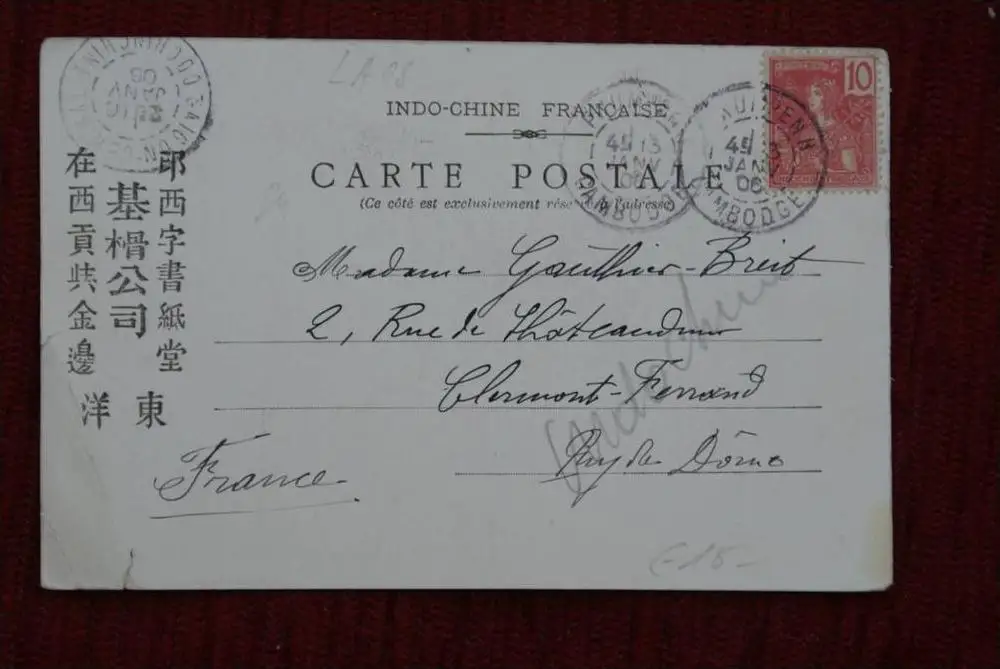 LAOS
INDO-CHINE FRANÇAISE
10
CARTE POSTALE
(Ce côté est exclusivement réservé à l'adresse)
SAIGON COCHINCHINE
CAMBODGE
JANV
06
CAMBODGE
JANV
06
印西字書紙堂
基楿公司
在西貢㒰金邊
東洋
Madame Gauthier-Breit
2, Rue de Châteaudun
Clermont-Ferrand
Puy de Dôme
France
Indochine